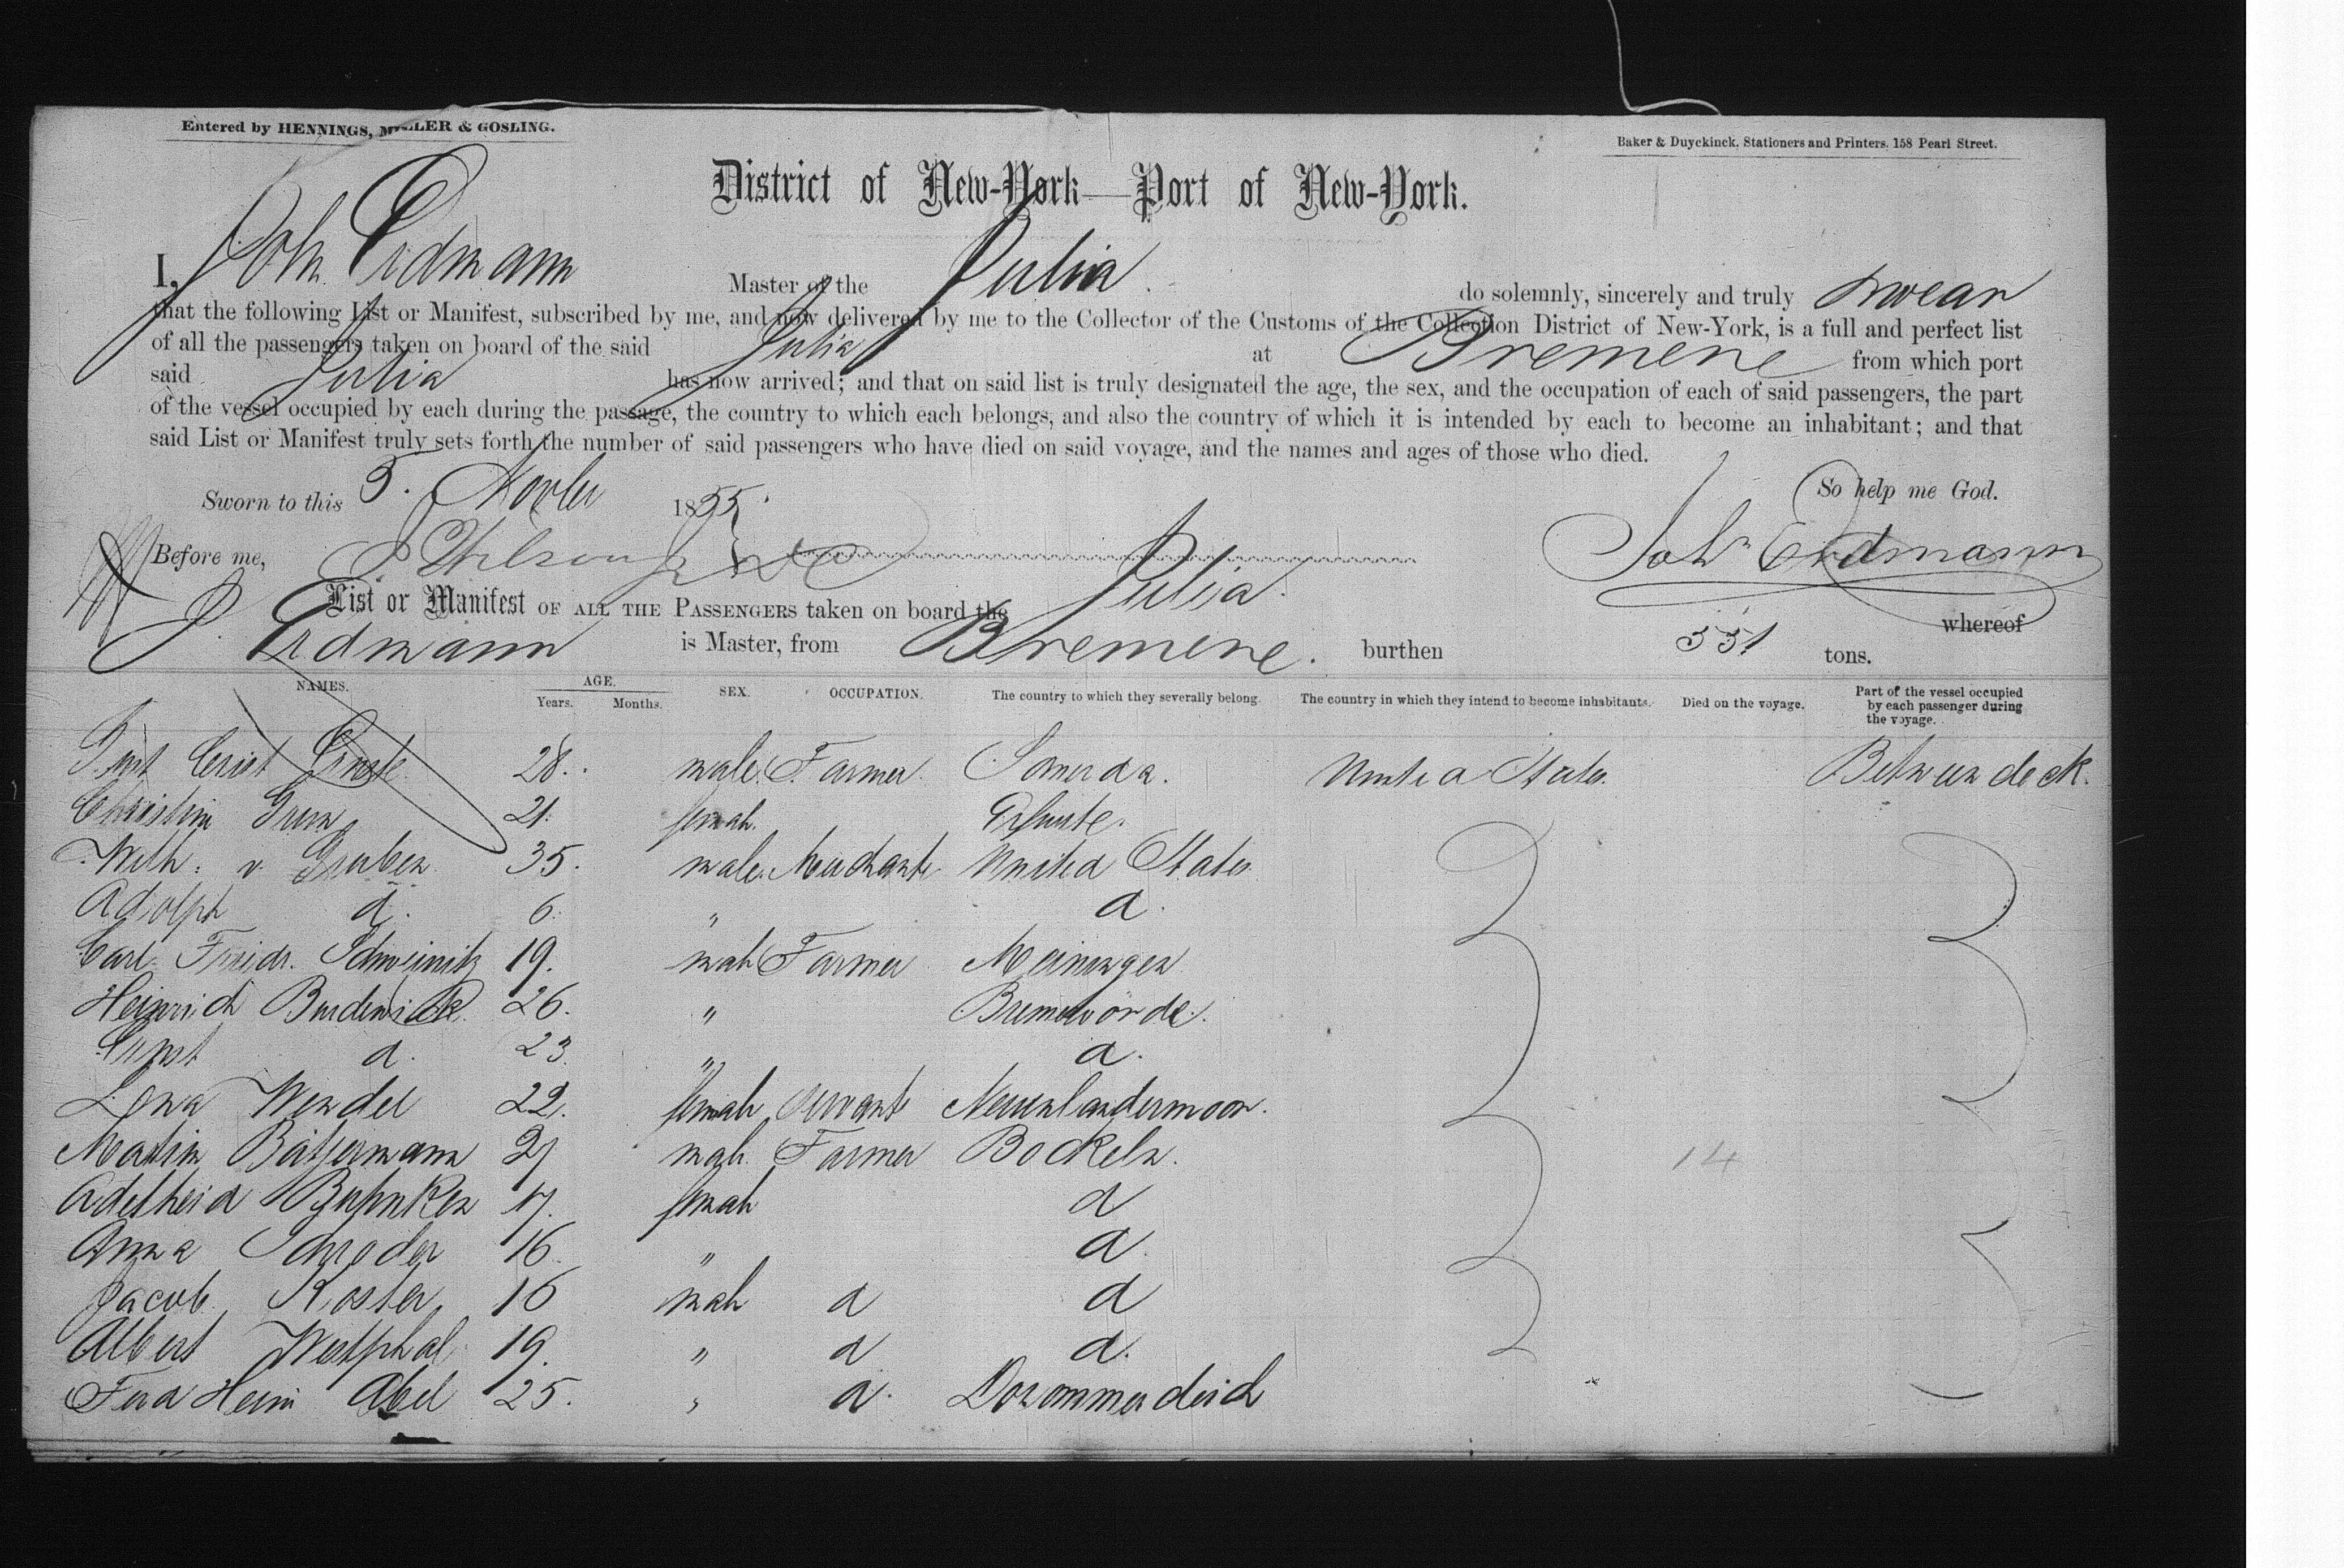 Entered by HENNINGS, MILLER & GOSLING.
Baker & Duyckinck, Stationers and Printers, 158 Pearl Street.
District of New-York—Port of New-York.
I, Joh. Erdmann Master of the Julia. do solemnly, sincerely and truly swear
that the following List or Manifest, subscribed by me, and now delivered by me to the Collector of the Customs of the Collection District of New-York, is a full and perfect list
of all the passengers taken on board of the said Julia at Bremene from which port
said Julia has now arrived; and that on said list is truly designated the age, the sex, and the occupation of each of said passengers, the part
of the vessel occupied by each during the passage, the country to which each belongs, and also the country of which it is intended by each to become an inhabitant; and that
said List or Manifest truly sets forth the number of said passengers who have died on said voyage, and the names and ages of those who died.
So help me God.
Sworn to this 5. Novbr 1855.
Before me, Joh. Erdmann
List or Manifest OF ALL THE PASSENGERS taken on board the Julia. whereof
J. Erdmann is Master, from Bremene. burthen 331 tons.
NAMES. AGE. Years. Months. SEX. OCCUPATION. The country to which they severally belong. The country in which they intend to become inhabitants. Died on the voyage. Part of the vessel occupied by each passenger during the voyage.
28. male. Farmer. Somerda. United States. Between deck.
21. femah.
Wilh. v. Gruben 35. male. Merchante United States.
Adolph d. 6. " d.
Carl Friedr. Schweinitz 19. mah Farmer Meiningen
Heinrich 26. " Bremervörde.
Ernst d. 23. " d.
Lena Wendel 22. femah servant Neuenlandermoor.
Martin Bätjermann 27 mah. Farmer Bockeln.
Adelheid 17. femah d
Anna Schroder 16 " d.
Jacob Koster 16 mah d d
Albert Westphal 19. " d d.
Ferd Heinr Abel 25. " d.
14